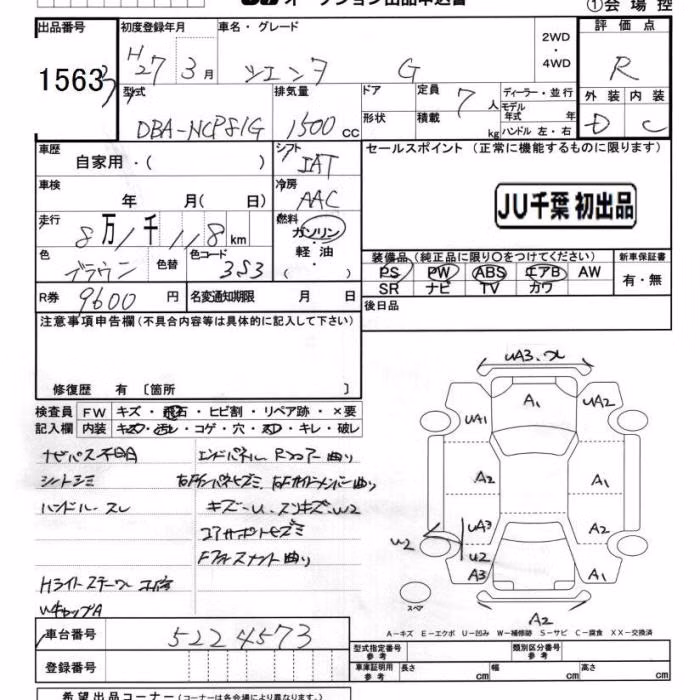 オークション出品申込書
①会場控
出品番号 初度登録年月 車名・グレード 2WD・4WD 評価点
1563 H27 3月 シエンタ G R
型式 排気量 ドア 定員 7人 ディーラー・並行 外装 内装
DBA-NCP81G 1500cc 形状 積載 kg モデル年式 年 D C
ハンドル 左・右
車歴 自家用・( ) シフト IAT セールスポイント (正常に機能するものに限ります)
車検 年 月( 日) 冷房 AAC
JU千葉 初出品
走行 8万1千118km 燃料 ガソリン・軽油・( )
色 ブラウン 色替 色コード 3S3
装備品(純正品に限り○をつけてください) 新車保証書
PS PW ABS エアB AW 有・無
SR ナビ TV カワ
R券 9600円 名変通知期限 月 日 後日品
注意事項申告欄(不具合内容等は具体的に記入して下さい)
修復歴 有 〔箇所 〕
検査員 FW キズ・飛石・ヒビ割・リペア跡・×要
記入欄 内装 キズ・汚レ・コゲ・穴・スレ・キレ・破レ
ナビパス不明 エンドパネル Rフロアー曲り
シートシミ 右Fインパネヒズミ 右Fサイドメンバー曲り
ハンドルスレ キズ・U・スンキズ・W2
コアサポートヒズミ
Fフォスメント曲り
Hライトステー
WキャップA
UA3.
A1 UA2
UA1
A2 A2
UA3 A2
U2 U2
A3 A1
A2
スペア
A−キズ E−エクボ U−凹み W−補修跡 S−サビ C−腐食 XX−交換済
車台番号 5224573
型式指定番号 参考 類別区分番号 参考
登録番号 車庫証明用 参考 長さ cm 幅 cm 高さ cm
希望出品コーナー (コーナーは各会場により異なります。)